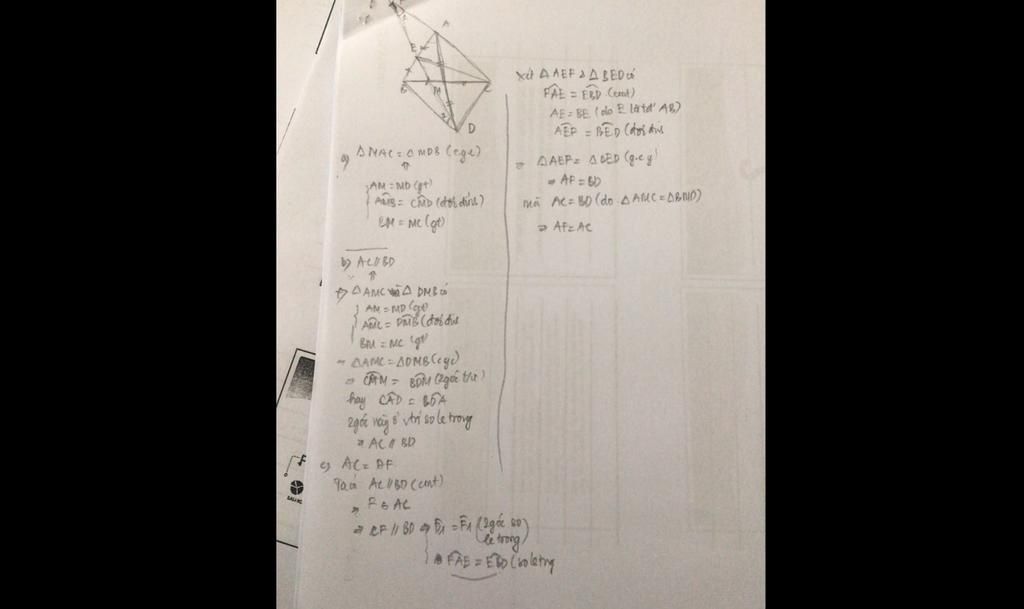 A
E
B
M
C
D
a) △MAC = △MDB (c.g.c)
AM = MD (gt)
AMB = CMD (đối đỉnh)
BM = MC (gt)
b) AC // BD
△AMC và △DMB có
AM = MD (gt)
AMC = DMB (đối đỉnh
BM = MC (gt)
→ △AMC = △DMB (c.g.c)
⇒ CAM = BDM (2 góc t/ư)
hay CAD = BDA
2 góc này ở vị trí so le trong
⇒ AC // BD
c) AC = AF
Ta có AC // BD (cmt)
F ∈ AC
⇒ CF // BD ⇒ D1 = F1 (2 góc so
le trong)
⇒ FAE = EBD (so le trg
Xét △AEF & △BED có
FAE = EBD (cmt)
AE = BE (do E là tđ AB)
AEF = BED (đối đỉnh
⇒ △AEF = △BED (g.c.g)
⇒ AF = BD
mà AC = BD (do △AMC = △BMD)
⇒ AF = AC